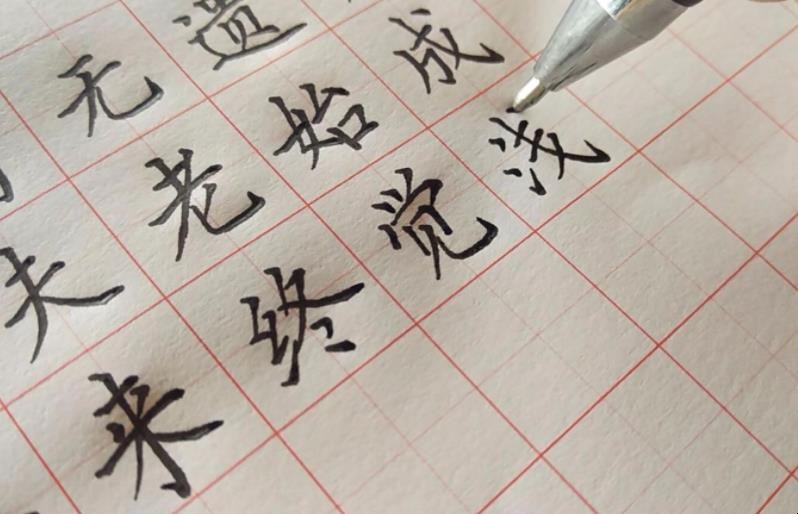 无遗
夫老始成
来终觉浅